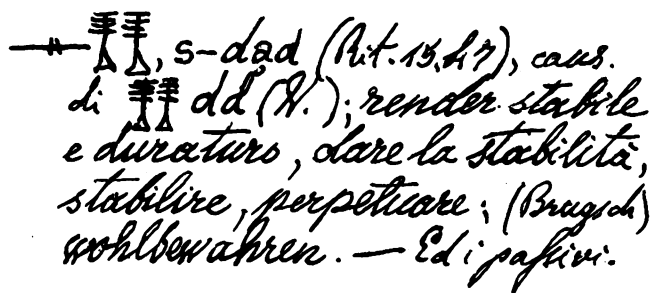 𓊃𓊽𓊽, s-dad (Rit. 15,47), caus.
di 𓊽𓊽 dd (V.); render stabile
e duraturo, dare la stabilità,
stabilire, perpetuare; (Brugsch)
wohlbewahren. — Ed i passivi.